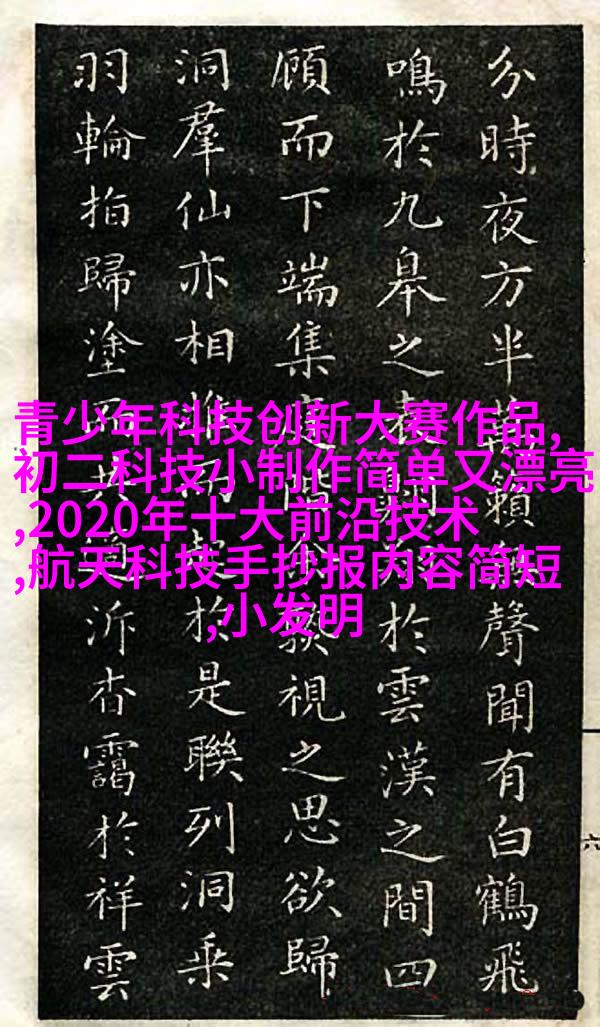 分時夜方半萬籟聲聞有白鶴飛
鳴於九皋之於雲漢之間四
顧而下端集視之思欲歸
洞羣仙亦相於是聯列洞乘
羽輪拍歸塗泝杳靄於祥雲
青少年科技创新大赛作品,
初二科技小制作简单又漂亮
,2020年十大前沿技术
,航天科技手抄报内容简短
,小发明
六